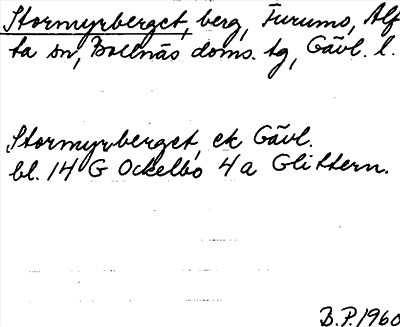 Stormyrberget, berg, Furumo, Alf
ta sn, Bollnäs doms. tg, Gävl. l.
Stormyrberget, ek Gävl.
bl. 14 G Ockelbo 4 a Glittern.
B.P. 1960